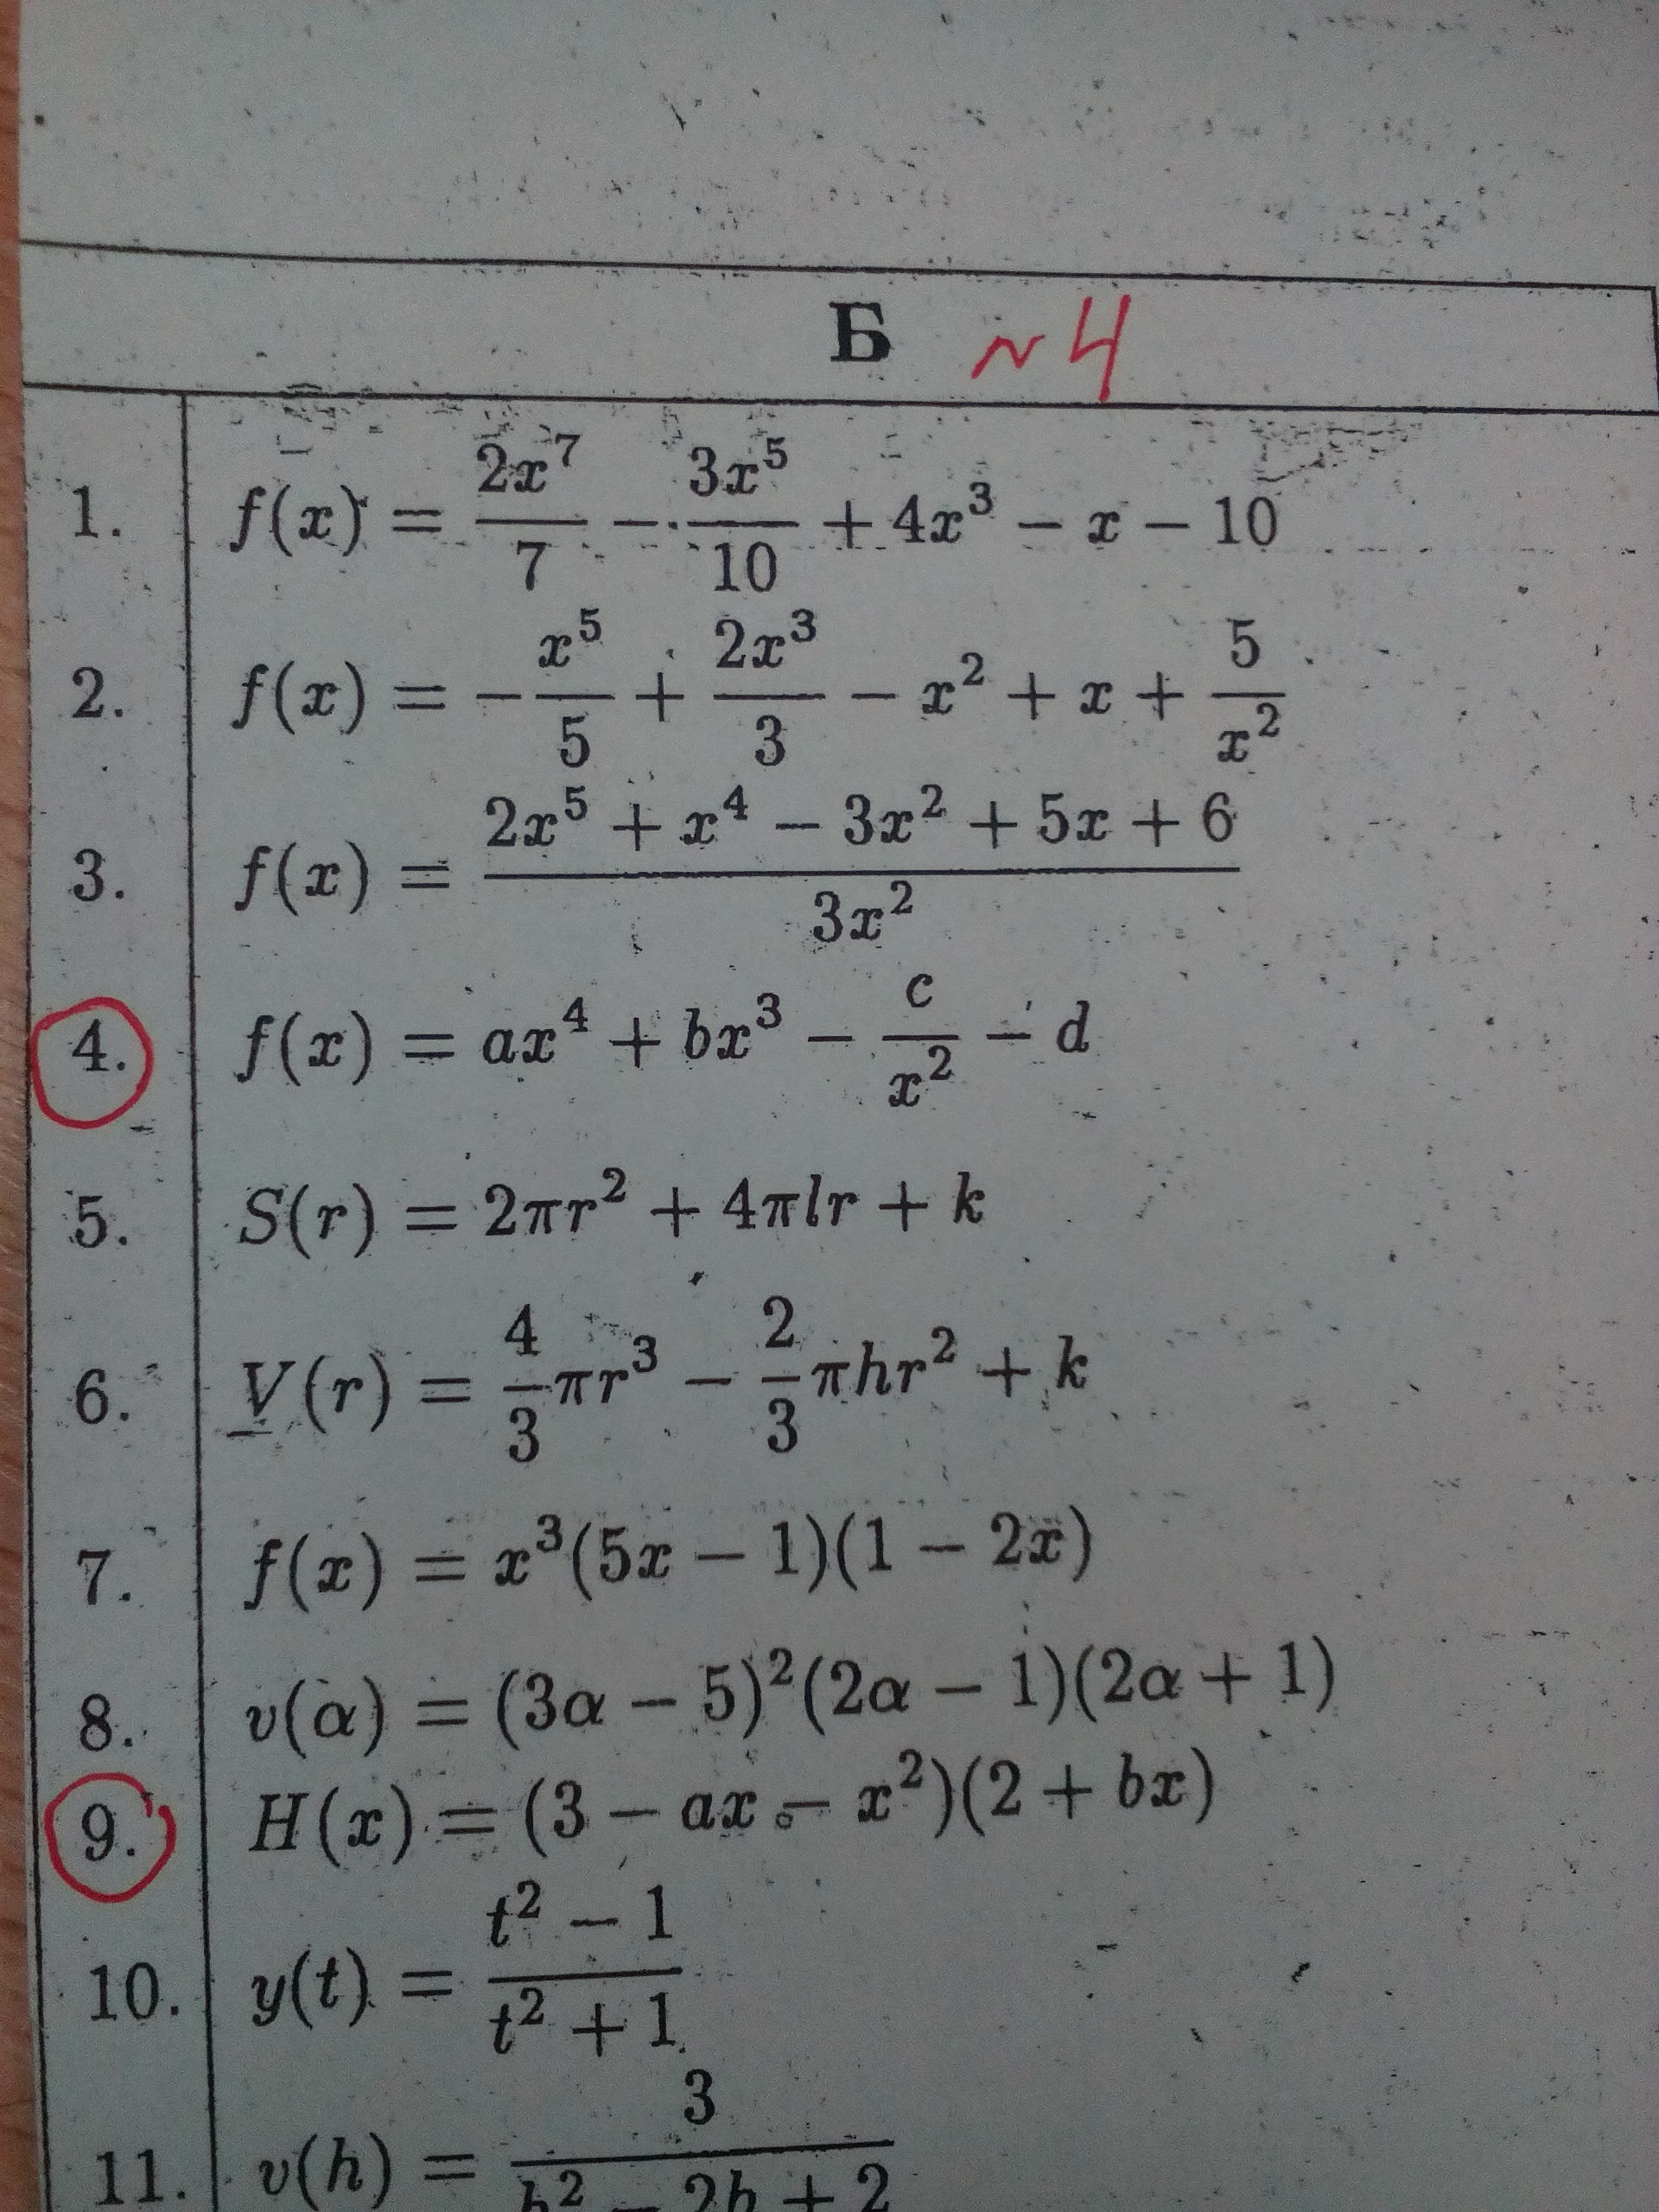 Б №4
1. f(x) = 2x⁷/7 − 3x⁵/10 + 4x³ − x − 10
2. f(x) = −x⁵/5 + 2x³/3 − x² + x + 5/x²
3. f(x) = (2x⁵ + x⁴ − 3x² + 5x + 6)/(3x²)
4. f(x) = ax⁴ + bx³ − c/x² − d
5. S(r) = 2πr² + 4πlr + k
6. V(r) = 4/3 πr³ − 2/3 πhr² + k
7. f(x) = x³(5x − 1)(1 − 2x)
8. v(α) = (3α − 5)²(2α − 1)(2α + 1)
9. H(x) = (3 − ax − x²)(2 + bx)
10. y(t) = (t² − 1)/(t² + 1)
11. v(h) = 3/(h² − 2h + 2)